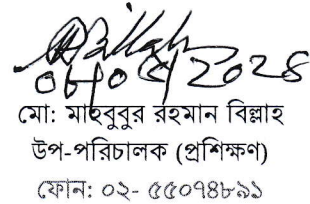 ০৮/০৫/২০২৪
মো: মাহবুবুর রহমান বিল্লাহ
উপ-পরিচালক (প্রশিক্ষণ)
ফোন: ০২- ৫৫০৭৪৮৯১